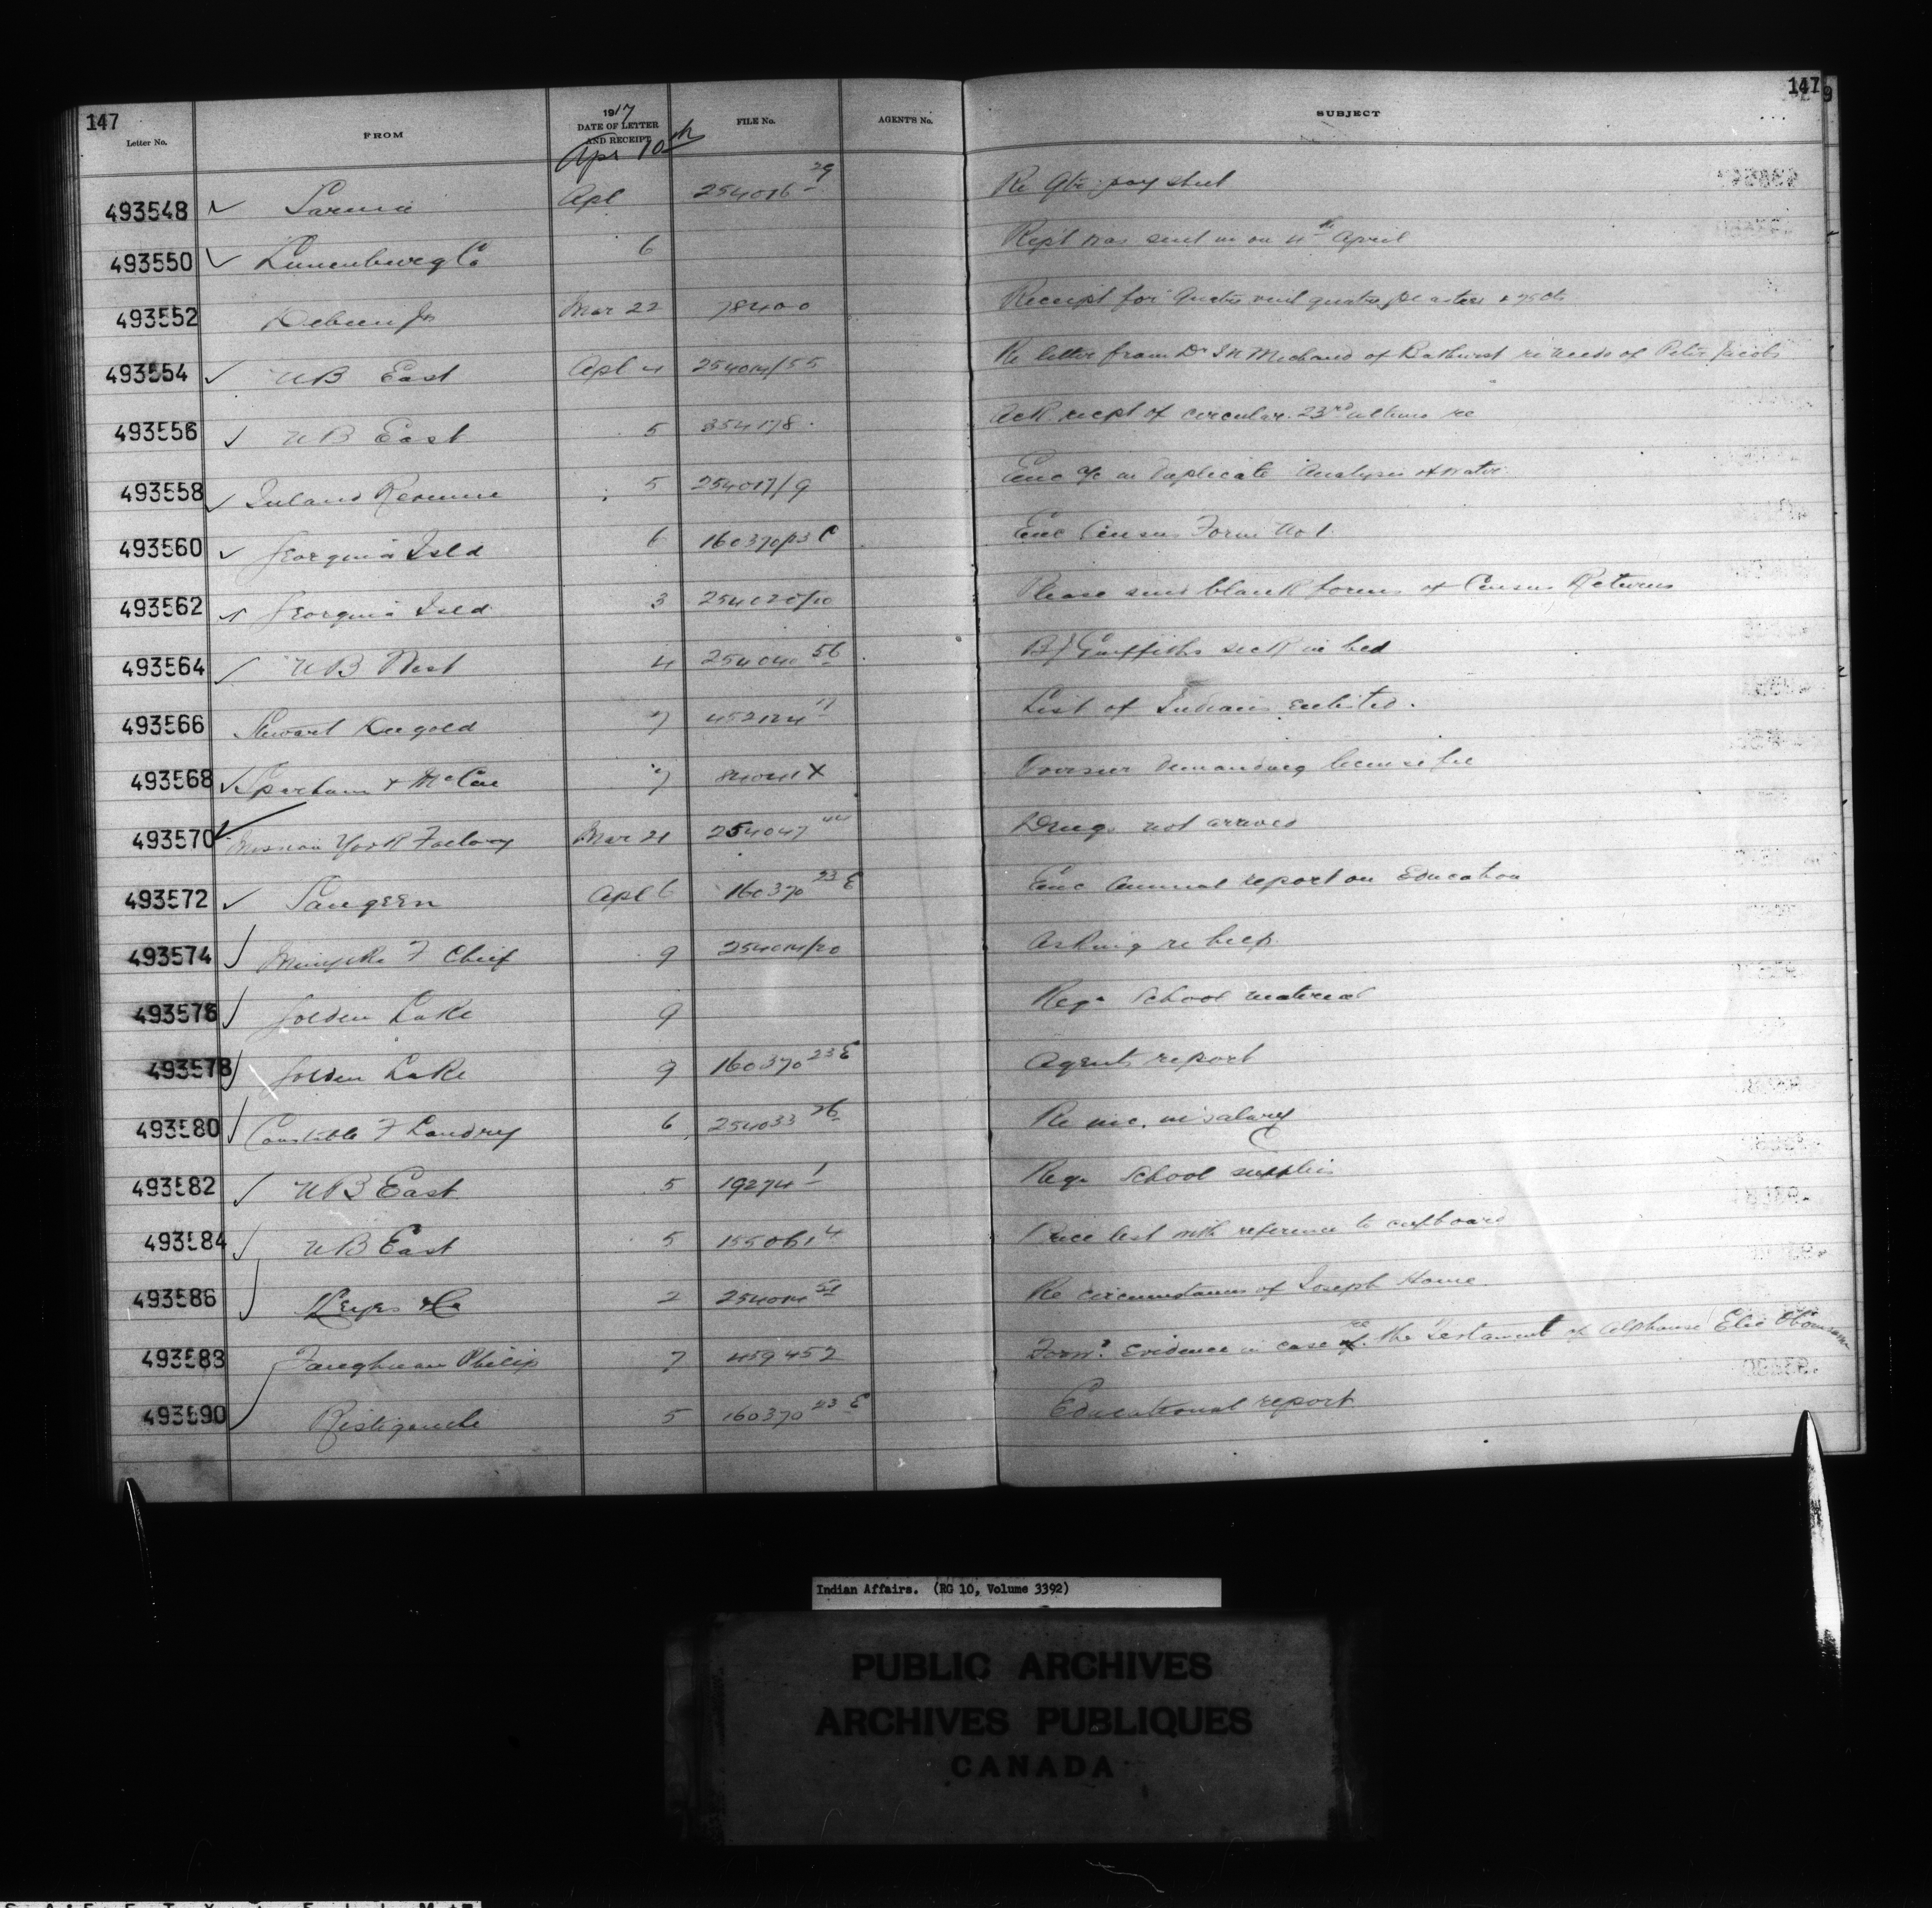 147 147 9
Letter No. FROM 1917 DATE OF LETTER AND RECEIPT FILE No. AGENT'S No. SUBJECT
Apr 10th
493548 ✓ Sarnia Apl 254016 29 Re Qtr pay sheet
493550 ✓ Lunenburg Co 6 Rept was sent in on 4th April
493552 Mar 22 78400 Receipt for quatre vingt quatre piastres & 75 cts
493554 ✓ NB East Apl 4 254014/55 Re letter from Dr Michaud of Bathurst re needs of Peter Jacobs
493556 ✓ NB East 5 354178 Ack recpt of circular 23rd ultimo re
493558 ✓ Inland Revenue 5 254017/9 Enc a/c in Duplicate Analysis of water
493560 ✓ Georgina Isld 6 160370/23 C Enc Census Form No 1
493562 ✓ Georgina Isld 3 254020/10 Please send blank forms of Census Returns
493564 ✓ NB West 4 254040 56 Griffiths sick in bed
493566 Stewart 7 452124 17 List of Indians enlisted.
493568 ✓ Sparham & McCue 7 84041X Overseer Demanding license fee
493570 ✓ Mission York Factory Mar 21 254047 44 Drugs not arrived
493572 ✓ Saugeen Apl 6 160370 23 E Enc Annual report on Education
493574 ✓ F Chief 9 254014/20 Asking re
493576 ✓ Golden Lake 9 Reqn School material
493578 ✓ Golden Lake 9 160370 23 E Agents report
493580 ✓ Constable F Landry 6 254033 26 Re inc. in salary
493582 ✓ NB East 5 19274 1 Reqn School supplies
493584 ✓ NB East 5 155061 4 Price list with reference to cupboard
493586 ✓ Keyes & Co 2 254014 51 Re circumstances of Joseph Howe
493588 Vaughan Philip 7 459452 Forwg Evidence in case re the Testament of Alphonse Elie
493590 ✓ Ristigouche 5 160370 23 E Educational report
Indian Affairs. (RG 10, Volume 3392)
PUBLIC ARCHIVES
ARCHIVES PUBLIQUES
CANADA